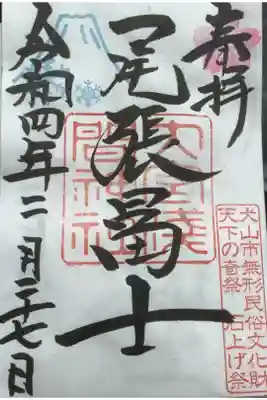 奉拝
犬山市無形民俗文化財
天下の奇祭 石上げ祭
尾張冨士
大宮浅
間神社
令和四年二月二十七日